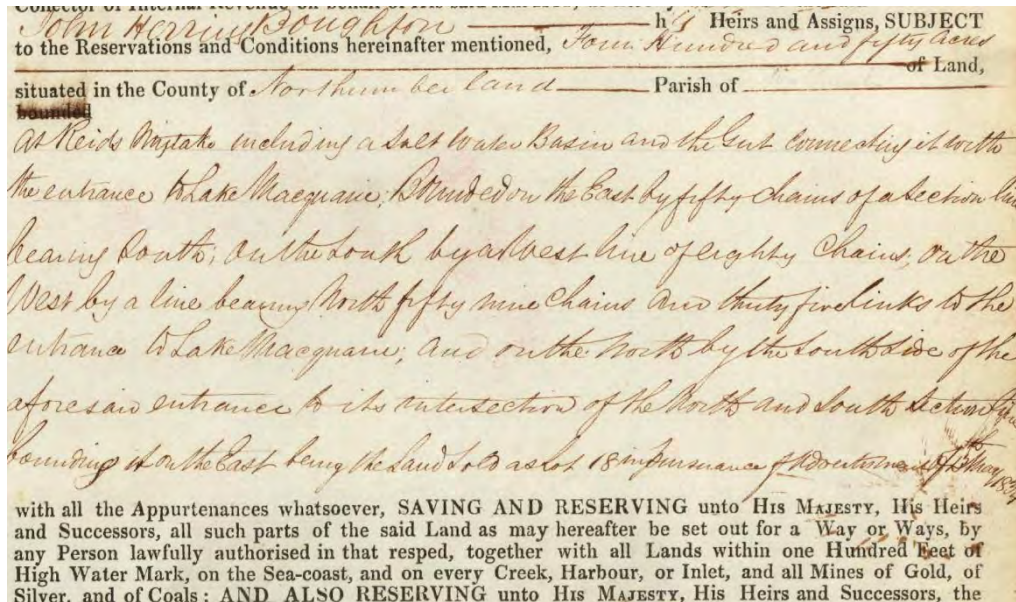 Collector of Internal Revenue on behalf of His said
John Herring Boughton h is Heirs and Assigns, SUBJECT
to the Reservations and Conditions hereinafter mentioned, Four Hundred and fifty acres
of Land,
situated in the County of Northumberland Parish of
bounded
At Reids Mistake including a Salt Water Basin and the Gut connecting it with
the entrance to Lake Macquarie; Bounded on the East by fifty chains of a Section line
bearing South; on the South by a West line of eighty Chains; on the
West by a line bearing North fifty nine Chains and thirty five links to the
entrance to Lake Macquarie; and on the North by the South Side of the
aforesaid entrance to its intersection of the North and South Section line
bounding it on the East being the Land Sold as lot 18 in pursuance of Advertisement of
with all the Appurtenances whatsoever, SAVING AND RESERVING unto HIS MAJESTY, His Heirs
and Successors, all such parts of the said Land as may hereafter be set out for a Way or Ways, by
any Person lawfully authorised in that resped, together with all Lands within one Hundred Feet of
High Water Mark, on the Sea-coast, and on every Creek, Harbour, or Inlet, and all Mines of Gold, of
Silver, and of Coals: AND ALSO RESERVING unto HIS MAJESTY, His Heirs and Successors, the